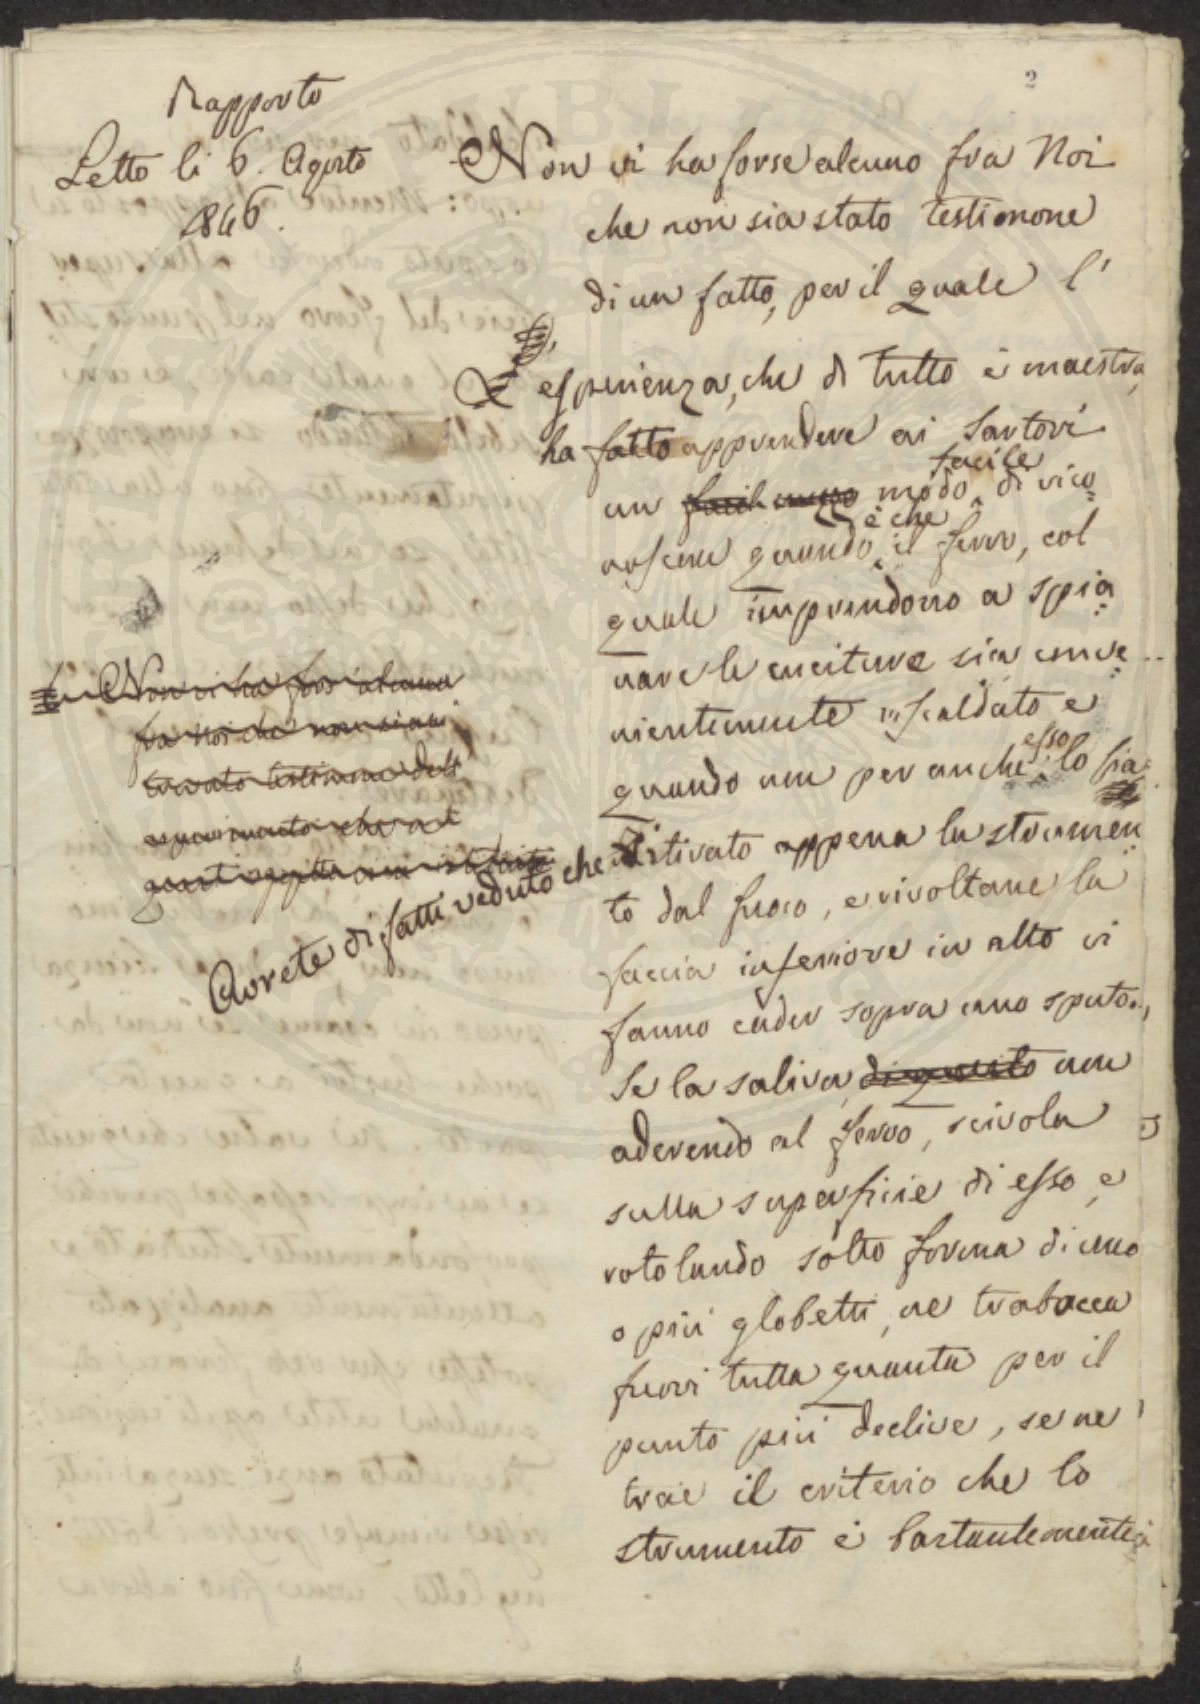 2
Rapporto
Letto li 6. Agosto
1846.
Non vi ha forse alcuno fra Noi
che non sia stato testimone
di un fatto, per il quale l'
esperienza, che di tutto è maestra,
ha fatto apprendere ai Sartori
un facil mezzo modo facile di rico
noscere quando è che il ferro, col
quale imprendono a spia
nare le cuciture sia conve
nientemente riscaldato e
quando non per anche esso lo sia
Non vi ha forse alcuno
fra Noi che non siasi
trovato testimone dell'
Avrete di fatti veduto che ritirato appena lo strumen
to dal fuoco, e rivoltane la
faccia inferiore in alto vi
fanno cader sopra uno sputo.
Se la saliva di questo non
aderendo al ferro, scivola
sulla superficie di esso, e
rotolando sotto forma di uno
o più globetti, ne trabocca
fuori tutta quanta per il
punto più declive, se ne
trae il criterio che lo
strumento è bastantemente